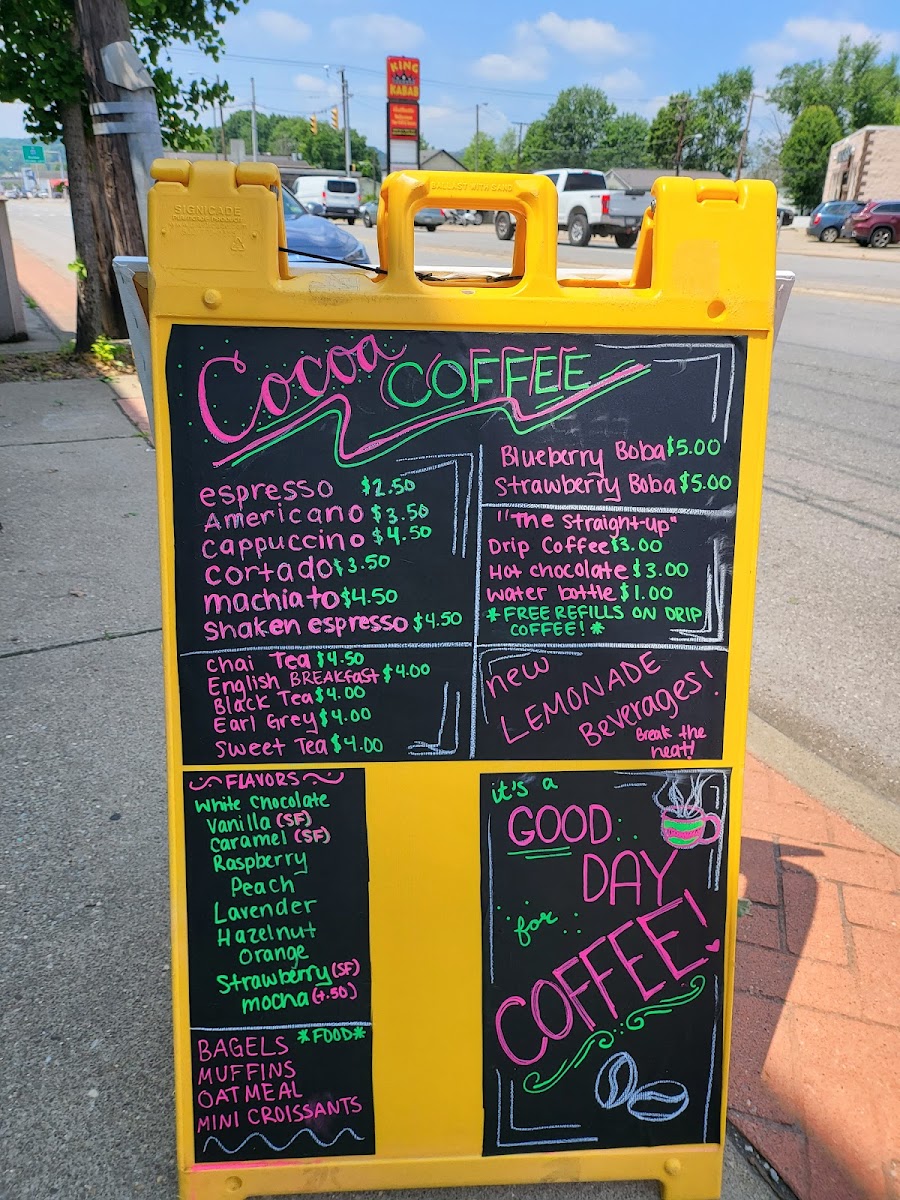 KING
KABAB
BALLAST WITH SAND
SIGNICADE
Cocoa COFFEE
espresso $2.50
Americano $3.50
cappuccino $4.50
cortado $3.50
machiato $4.50
shaken espresso $4.50
Blueberry Boba $5.00
Strawberry Boba $5.00
"The straight-up"
Drip Coffee $3.00
Hot chocolate $3.00
water bottle $1.00
*FREE REFILLS ON DRIP
COFFEE! *
chai Tea $4.50
English BREAKfast $4.00
Black Tea $4.00
Earl Grey $4.00
sweet Tea $4.00
new
LEMONADE
Beverages!
Break the
heat!
FLAVORS
White Chocolate
Vanilla (SF)
caramel (SF)
Raspberry
Peach
Lavender
Hazelnut
Orange
Strawberry (SF)
mocha (+.50)
*FOOD*
BAGELS
MUFFINS
OATMEAL
MINI CROISSANTS
it's a
GOOD
DAY
for
COFFEE!